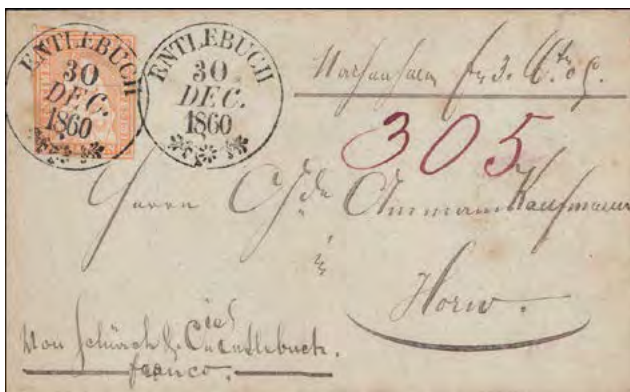 ENTLEBUCH
30
DEC.
1860
ENTLEBUCH
30
DEC.
1860
Nachnahme fr 3.
305
Herrn Ammann Kaufmann
Horw.
Von Schürch & Cie Entlebuch.
franco.